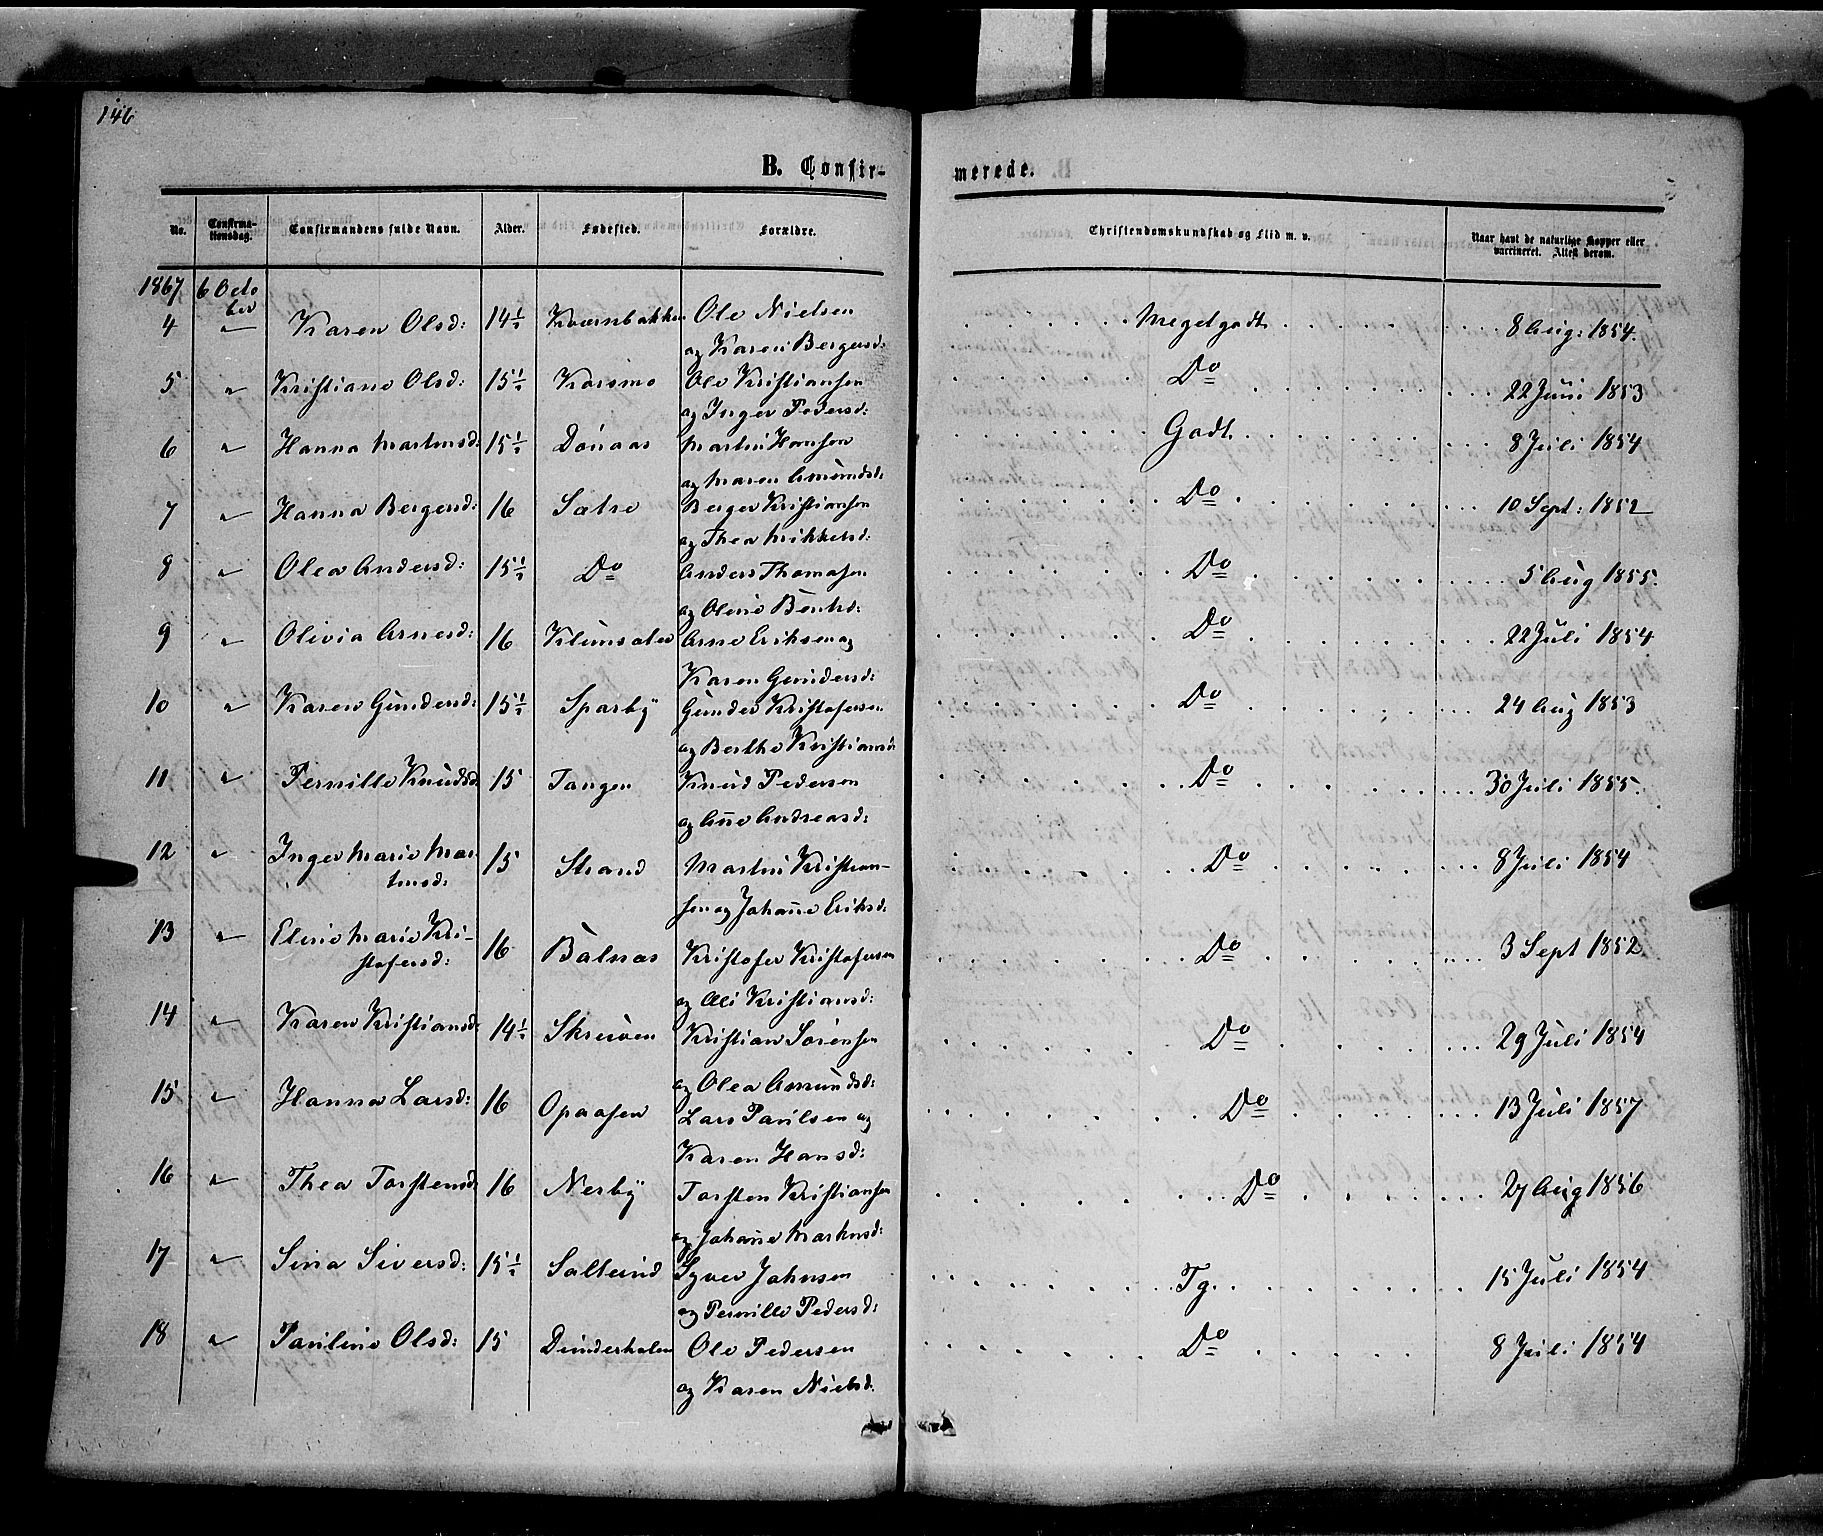 146
B. Confir-
merede.
No.
Confirma-
tionsdag.
Confirmandens fulde Navn.
Alder.
Fødested.
Forældre.
Christendomskundskab og Flid m. v.
Naar havt de naturlige Kopper eller
vaccineret. Attest derom.
1867 6 Octo
ber
4 " Karen Olsd: 14½ Kværnbakken Ole Nielsen Megetgodt. 8 Aug: 1854.
og Karen Bergersd:
5 " Kristiane Olsd: 15½ Korsmo Ole Kristiansen Do 22 Juni 1853
og Inger Pedersd:
6 " Hanna Martinsd: 15½ Martin Hansen Godt. 8 Juli 1854
og Maren Amundsd:
7 " Hanna Bergersd: 16 Sætre Berger Kristiansen Do 10 Sept: 1852
og Thea Mikkelsd:
8 " Olea Andersd: 15½ Do Anders Thomasen Do 5 Aug 1855.
og Oline Berntsd:
9 " Olivia Arnesd: 16 Arne Eriksen og Do 22 Juli 1854
Karen Gundersd:
10 " Karen Gundersd: 15½ Sparby Gunder Kristofersen Do 24 Aug 1853
og Berthe Kristiansd:
11 " Pernille Knudsd: 15 Tangen Knud Pedersen Do 30 Juli 1855.
og Ane Andreasd:
12 " Inger Marie Mar 15 Strand Martin Kristian- Do 8 Juli 1854
tinsd:
sen og Johane Eriksd:
13 " Eline Marie Kri- 16 Balnæs Kristofer Kristofersen Do 3 Sept 1852
stofersd:
og Kristiansd:
14 " Karen Kristiansd: 14½ Kristian Sørensen Do 29 Juli 1854
og Olea Amundsd:
15 " Hanna Larsd: 16 Opaasen Lars Paulsen og Do 13 Juli 1857
Karen Hansd:
16 " Thea Torstensd: 16 Nerby Torsten Kristiansen Do 27 Aug 1856
og Johane Markusd:
17 " Sina Siversd: 15½ Syver Johnsen Tg. 15 Juli 1854
og Pernille Pedersd:
18 " Pauline Olsd: 15 Ole Pedersen Do 8 Juli 1854
og Karen Nielsd.